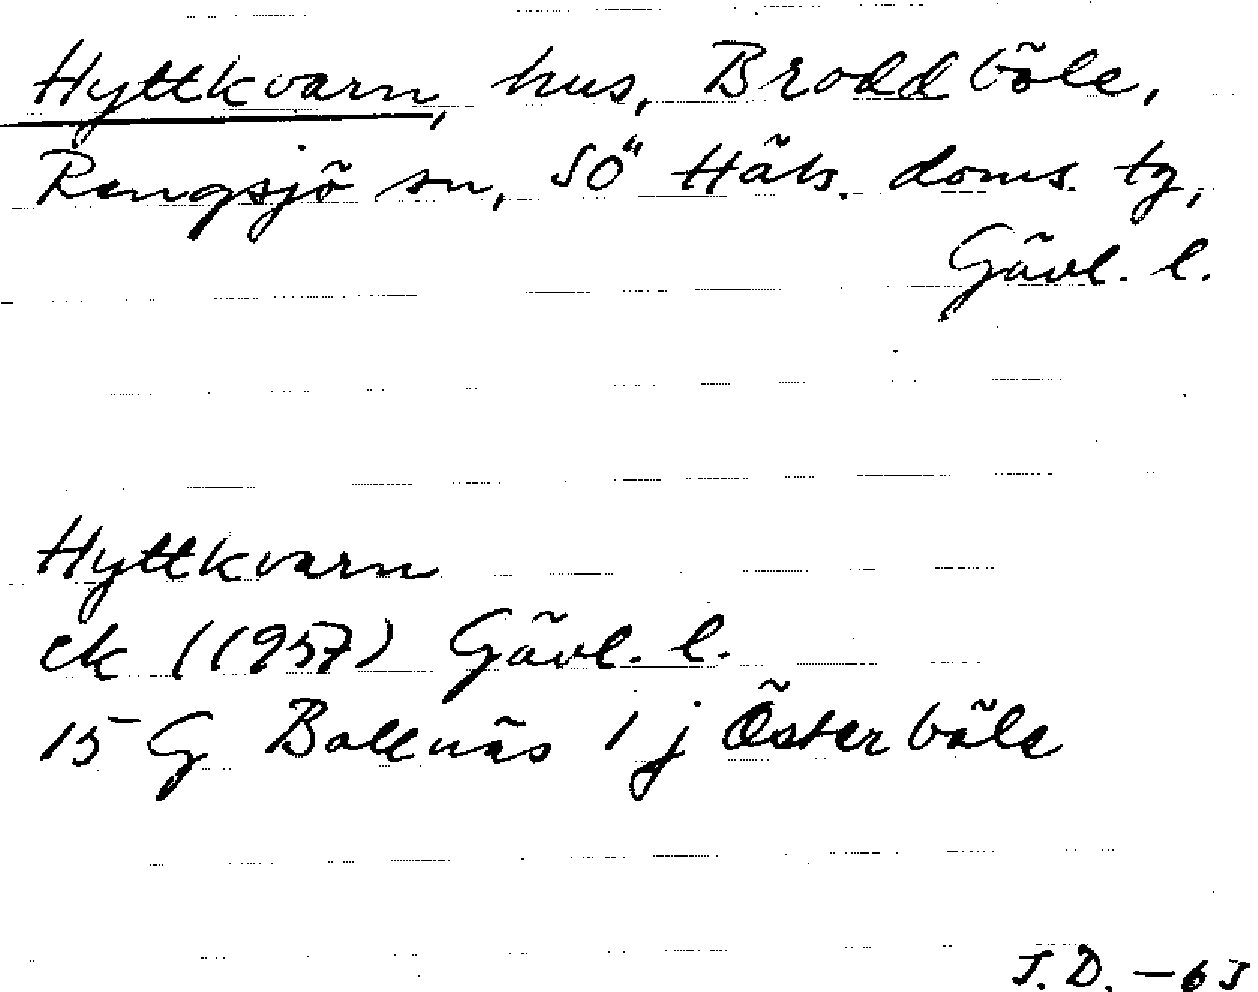 Hyttkvarn, hus, Broddböle,
Rengsjö sn, SÖ Häls. doms. tg,
Gävl. l.
Hyttkvarn
ek (1957) Gävl. l.
15 G Bollnäs 1 j Österböle
J.D. -63